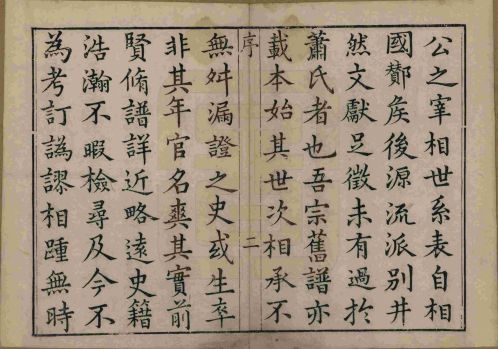 公之宰相世系表自相
國酇矦後源流派別井
然文獻足徵未有過於
蕭氏者也吾宗舊譜亦
載本始其世次相承不
序
二
無舛漏證之史或生卒
非其年官名爽其實前
賢脩譜詳近略遠史籍
浩瀚不暇檢尋及今不
為考訂譌謬相踵無時